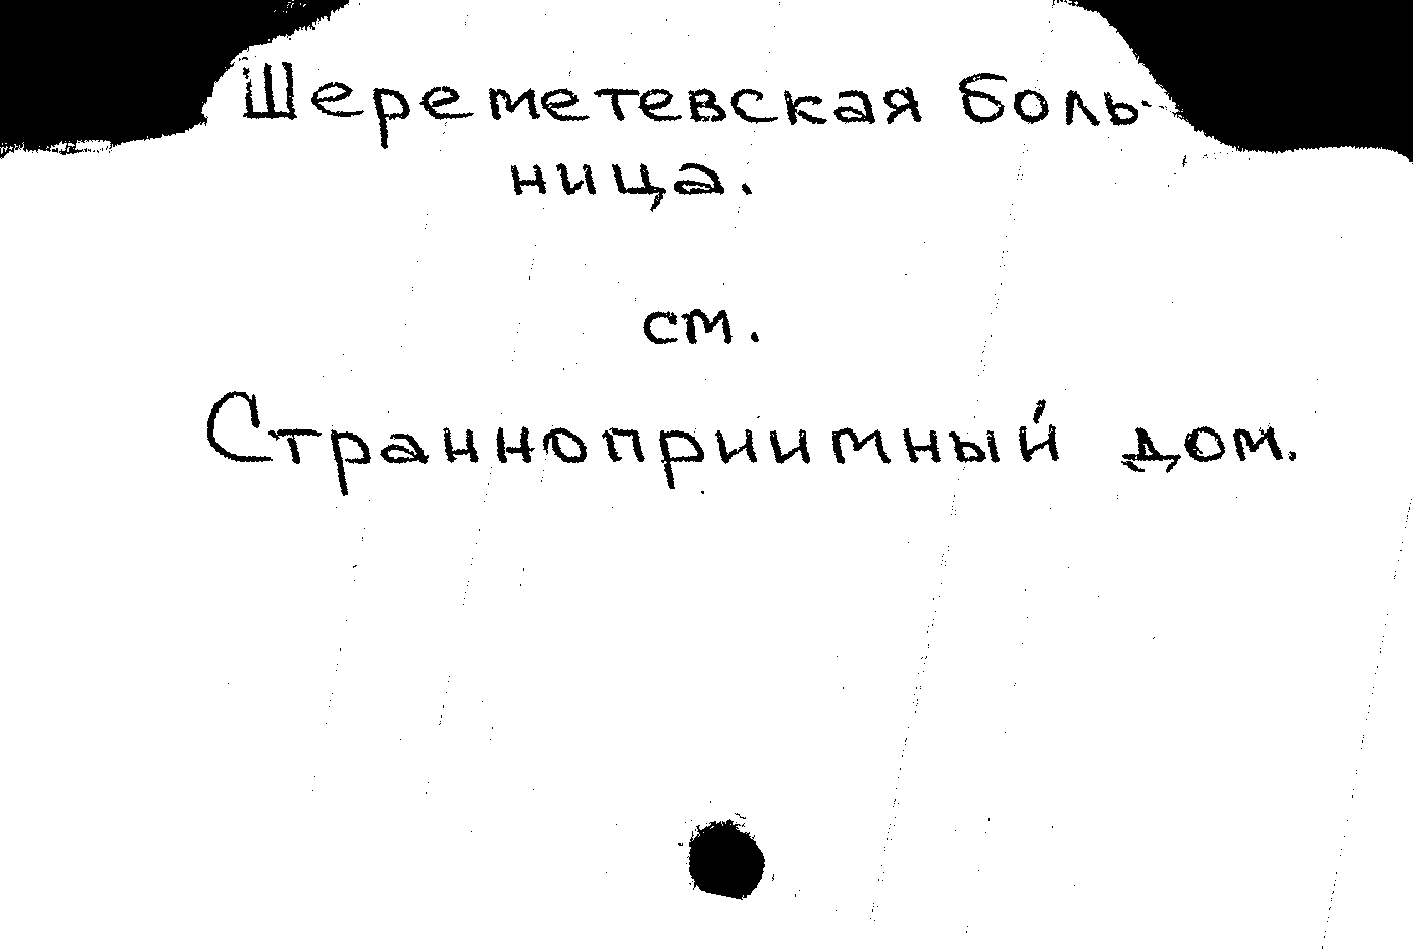 Шереметевская боль-
ница.
см.
Странноприимный дом.